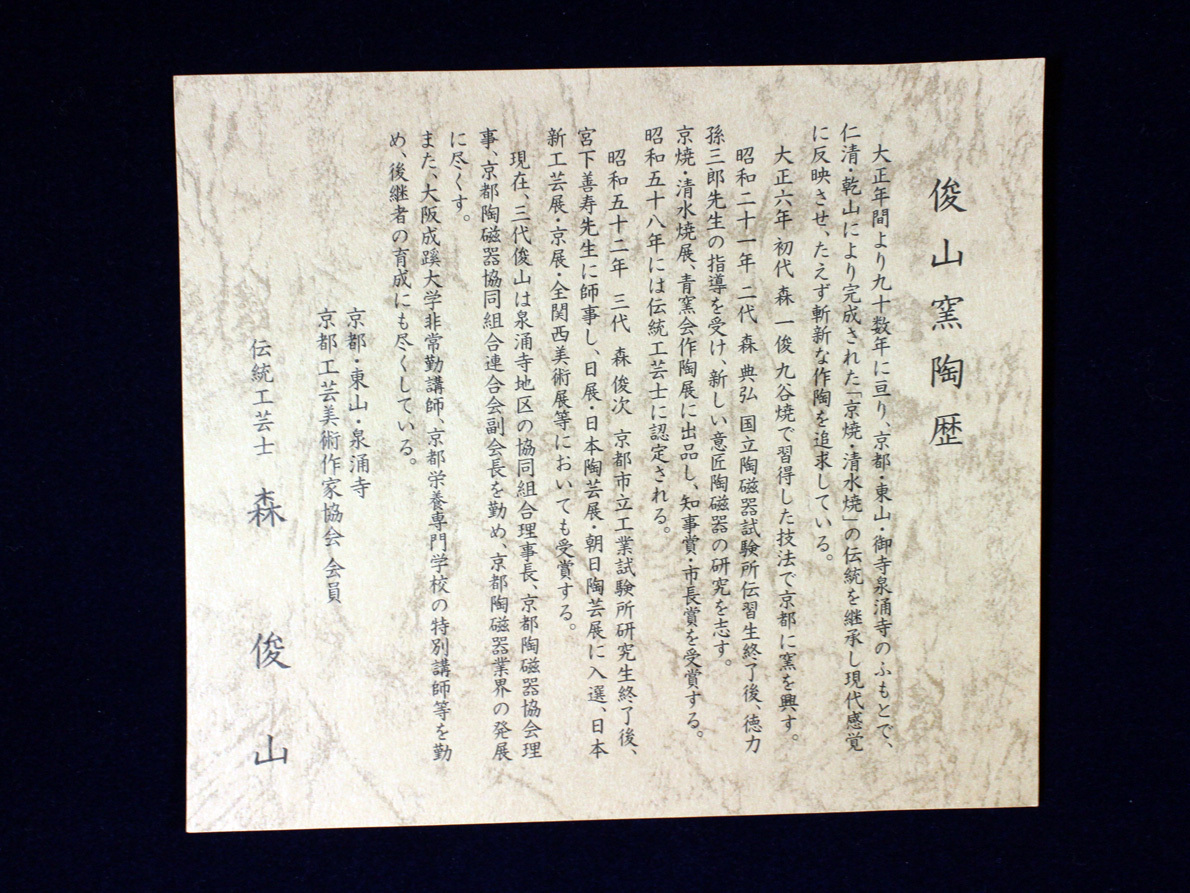 俊山窯陶歴
大正年間より九十数年に亘り、京都・東山・御寺泉涌寺のふもとで、
仁清・乾山により完成された「京焼・清水焼」の伝統を継承し現代感覚
に反映させ、たえず斬新な作陶を追求している。
大正六年 初代 森 一俊 九谷焼で習得した技法で京都に窯を興す。
昭和二十一年 二代 森 典弘 国立陶磁器試験所伝習生終了後、徳力
孫三郎先生の指導を受け、新しい意匠陶磁器の研究を志す。
京焼・清水焼展、青窯会作陶展に出品し、知事賞・市長賞を受賞する。
昭和五十八年には伝統工芸士に認定される。
昭和五十二年 三代 森 俊次 京都市立工業試験所研究生終了後、
宮下善寿先生に師事し、日展・日本陶芸展・朝日陶芸展に入選、日本
新工芸展・京展・全関西美術展等においても受賞する。
現在、三代俊山は泉涌寺地区の協同組合理事長、京都陶磁器協会理
事、京都陶磁器協同組合連合会副会長を勤め、京都陶磁器業界の発展
に尽くす。
また、大阪成蹊大学非常勤講師、京都栄養専門学校の特別講師等を勤
め、後継者の育成にも尽くしている。
京都・東山・泉涌寺
京都工芸美術作家協会会員
伝統工芸士 森 俊山